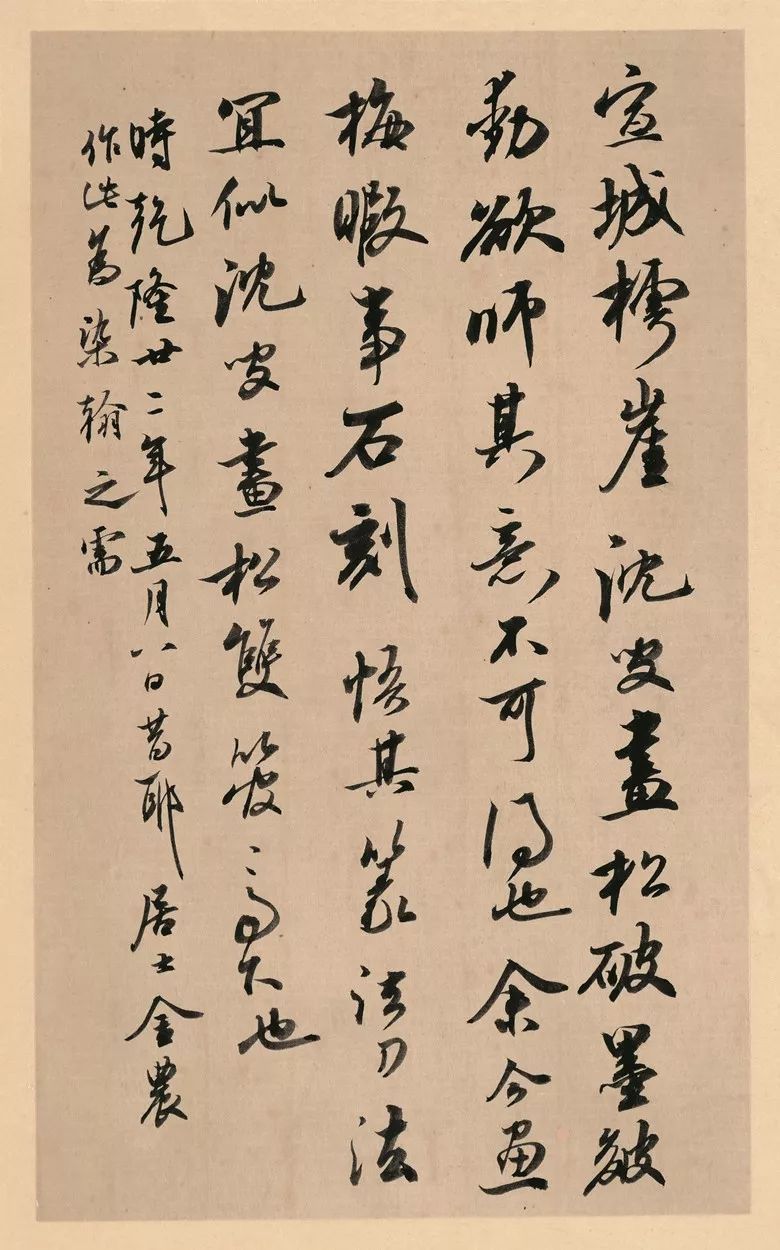 宣城樗崖沈叟畫松破墨皴
勒欲師其意不可得也余今畫
梅暇事石刻悟其篆法刀法
宜似沈叟畫松雙高下也
時乾隆廿二年五月八日昔耶居士金農
作此染翰之需